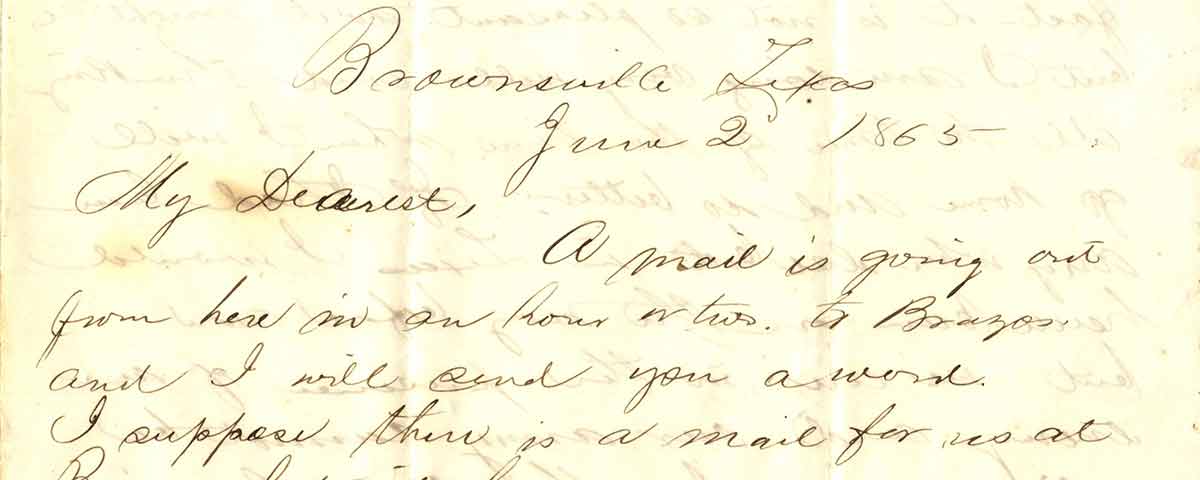 Brownsville Texas
June 2 1865
My Dearest,
A mail is going out
from here in an hour or two. to Brazos.
and I will send you a word.
I suppose there is a mail for us at